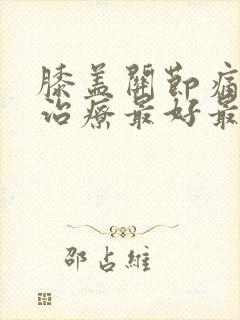 膝盖關節痛
治療最好最
邵占維